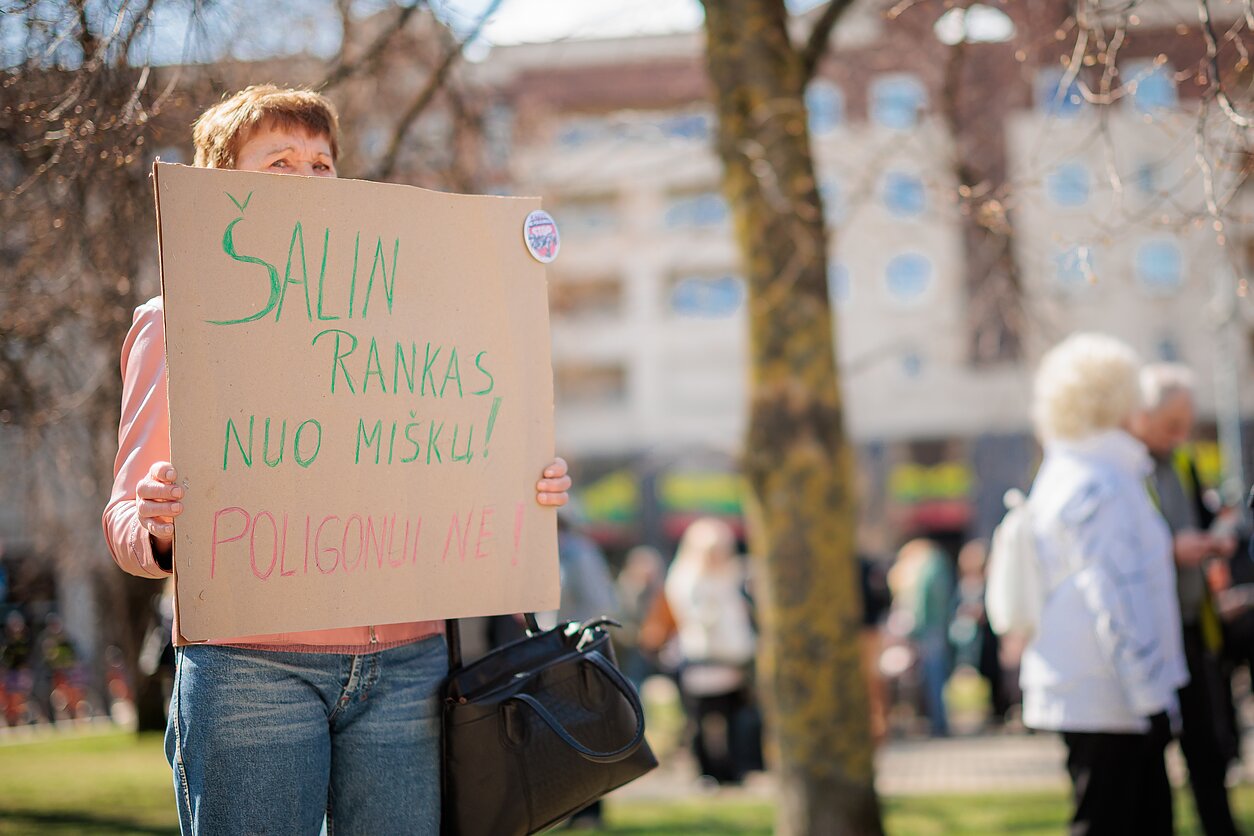 ŠALIN
RANKAS
NUO MIŠKŲ!
POLIGONUI NE!
STOP